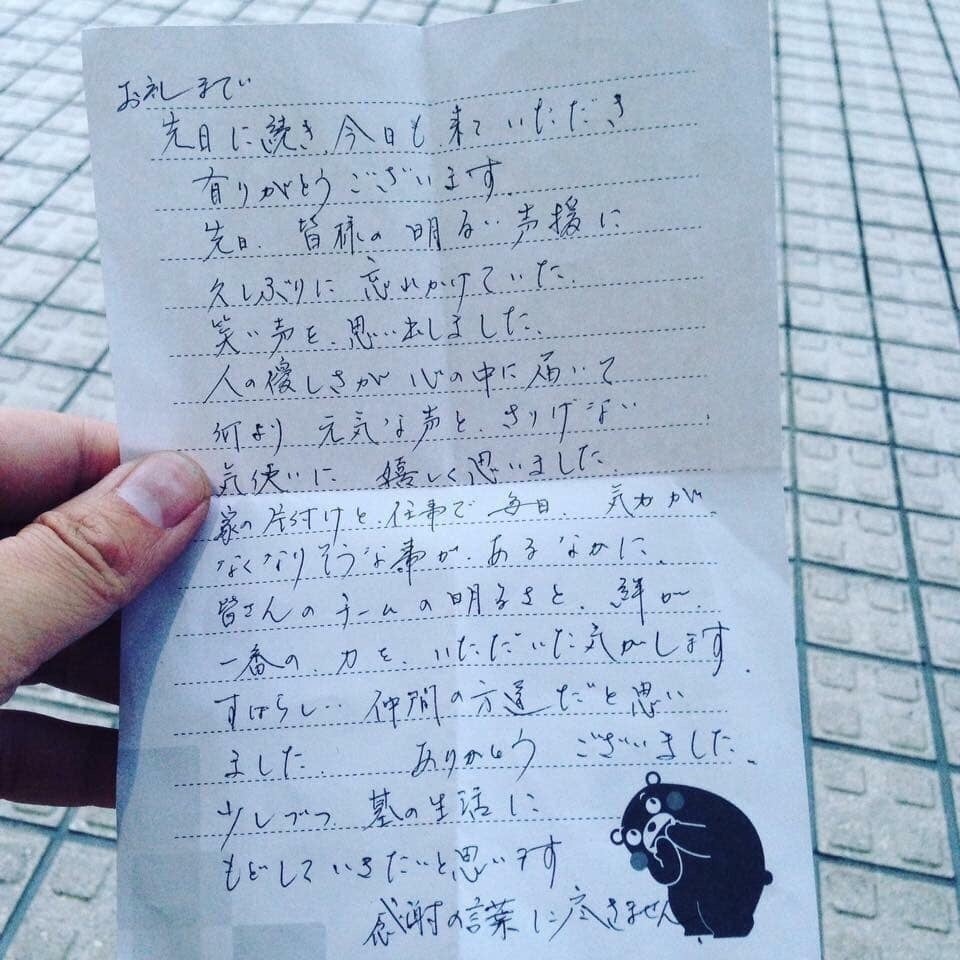 お礼まで
先日に続き、今日も、来ていただき
有りがとうございます。
先日、皆様の明るい声援に
久しぶりに忘れかけていた、
笑い声を、思い出しました、
人の優しさが心の中に届いて
何より元気な声と、さりげない
気使いに嬉しく思いました、
家の片付けと、仕事で毎日、気力が、
なくなりそうな事が、あるなかに、
皆さんのチームの明るさと、絆が、
一番の、力を、いただいた気がします。
すばらしい仲間の方達だと思い
ました、ありがとうございました、
少しづつ、墓の生活に
もどしていきたいと思います
感謝の言葉に尽きません、